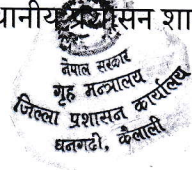 स्थानीय प्रशासन शा
नेपाल सरकार
गृह मन्त्रालय
जिल्ला प्रशासन कार्यालय
धनगढी, कैलाली